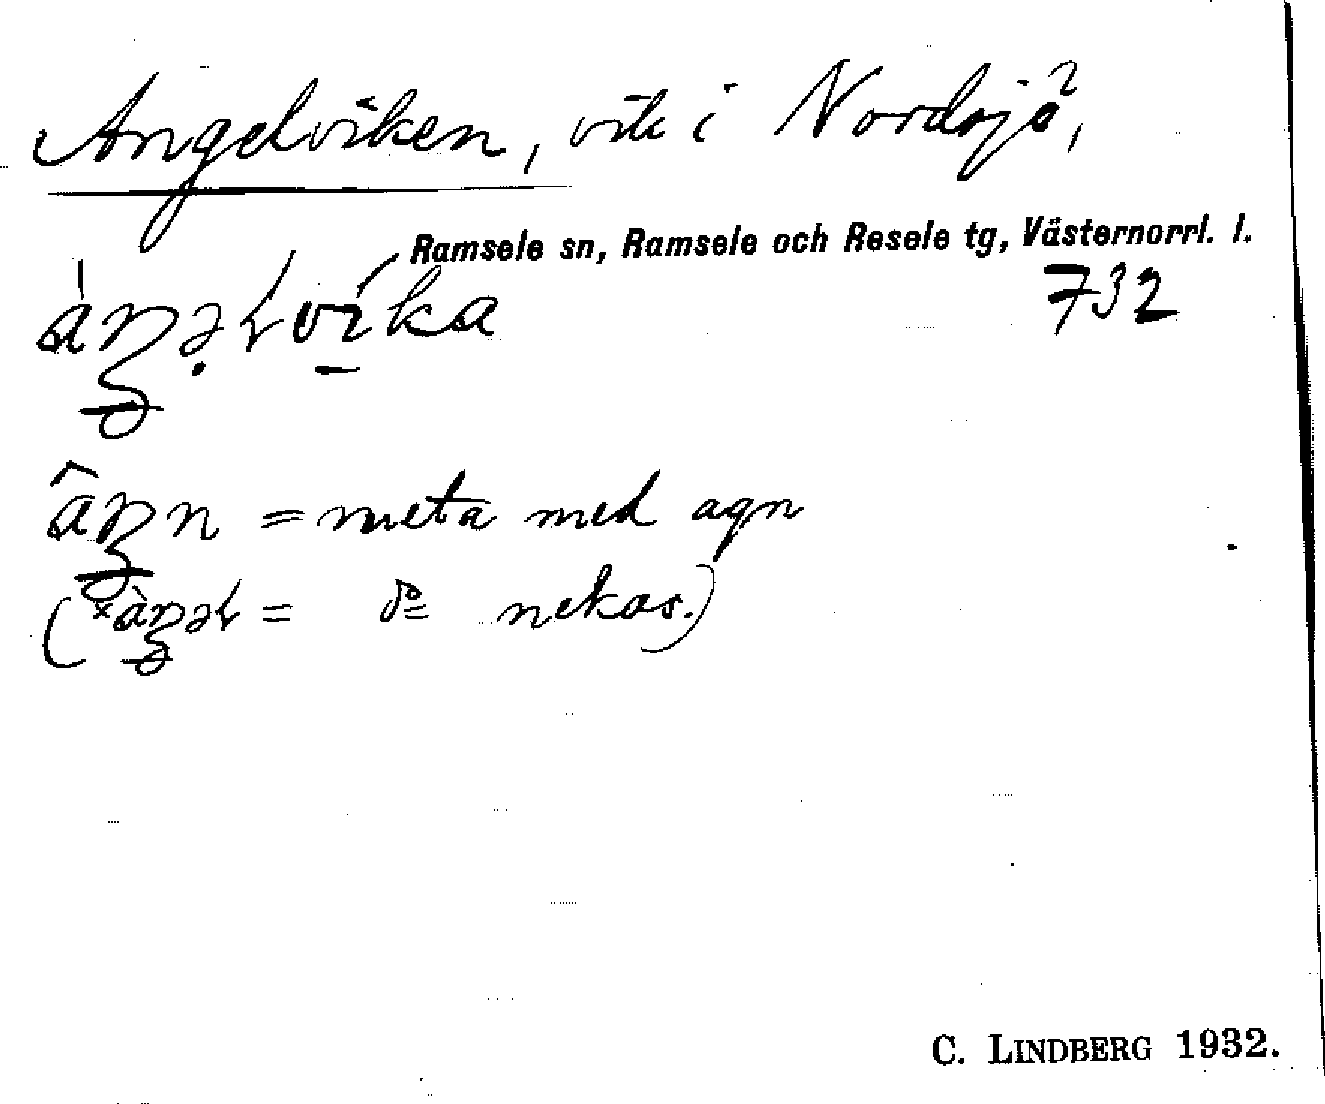 Angelviken, vik i Nordsjö²,
Ramsele sn, Ramsele och Resele tg, Västernorrl. l.
732
= meta med agn
= do nekas.)
C. LINDBERG 1932.